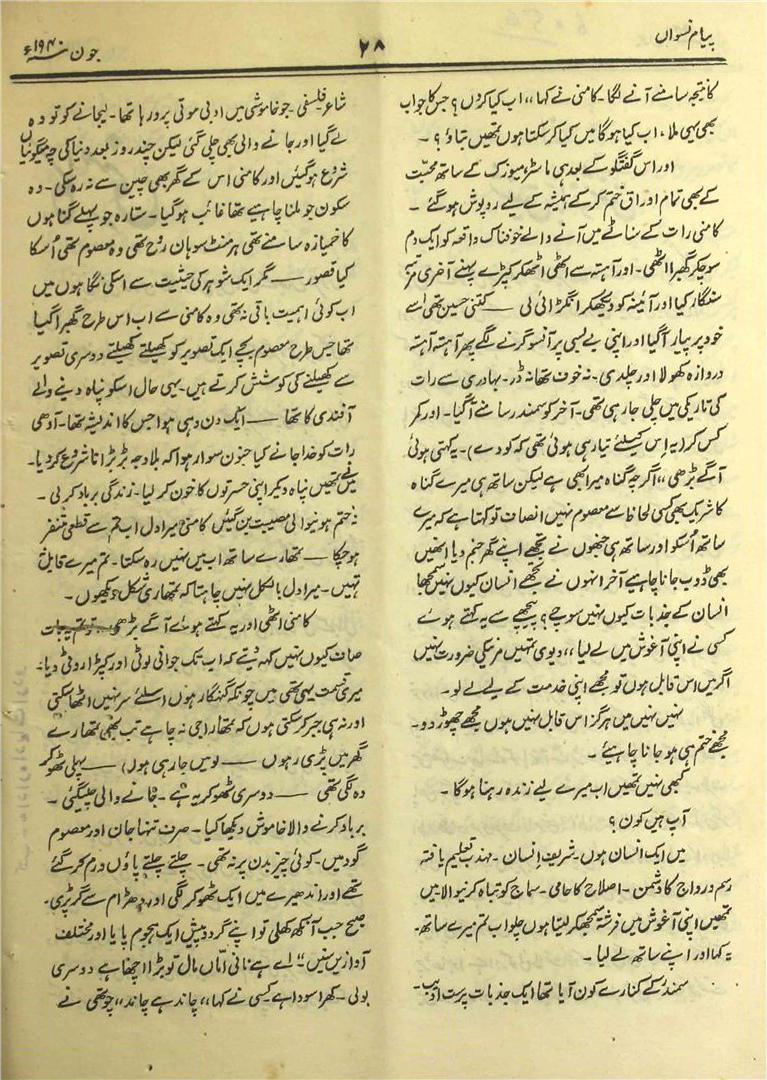 پیام نسواں
۲۸
جون ۱۹۴۰ء
کا نتیجہ سامنے آنے لگا۔ کامنی نے کہا ،، اب کیا کروں؟ جس کا جواب
بھی یہی ملا ، اب کیا ہوگا میں کیا کر سکتا ہوں تمھیں بتاؤ ؟ ۔
اور اس گفتگو کے بعد ہی ماسٹر میوزک کے ساتھ محبّت
کے بھی تمام اوراق ختم کر کے ہمیشہ کے لیے روپوش ہو گئے ۔
کامنی رات کے سناٹے میں آنے والے خوفناک واقعہ کو ایک دم
سوچکر گھبرا اٹھی ۔ اور آہستہ سے اٹھی اٹھکر کپڑے پہنے آخری مرتبہ
سنگار کیا اور آئینہ کو دیکھکر انگڑائی لی ــــ کتنی حسین تھی اُسے
خود پر پیار آگیا اور اپنی بے بسی پر آنسو گرنے لگے پھر آہستہ آہستہ
دروازہ کھولا اور چلدی ۔ نہ خوف تھا نہ ڈر ۔ بہادری سے رات
کی تاریکی میں چلی جا رہی تھی ۔ آخر کو سمندر سامنے آگیا ۔ اور کمر
کس کر (یہ اس کیلئے تیار ہی ہوئی تھی کہ کود دے) ۔ یہ کہتی ہوئی
آگے بڑھی ،، اگرچہ گناہ میرا بھی ہے لیکن ساتھ ہی میرے گناہ
کا شریک بھی کسی لحاظ سے معصوم نہیں انصاف تو کہتا ہے کہ میرے
ساتھ اُسکو اور ساتھ ہی جنھوں نے مجھے اپنے گھر جنم دیا انھیں
بھی ڈوب جانا چاہیے آخر انہوں نے مجھے انسان کیوں نہیں سمجھا
انسان کے جذبات کیوں نہیں سوچے ؟ پیچھے سے یہ کہتے ہوئے
کسی نے اپنی آغوش میں لے لیا ،، دیوی تمہیں مرنیکی ضرورت نہیں
اگر میں اس قابل ہوں تو مجھے اپنی خدمت کے لیے لے لو ۔
نہیں نہیں میں ہرگز اس قابل نہیں ہوں مجھے چھوڑ دو ۔
مجھے ختم ہی ہو جانا چاہیئے ۔
کبھی نہیں تمھیں اب میرے لیے زندہ رہنا ہوگا ۔
آپ ہیں کون ؟
میں ایک انسان ہوں ۔ شریف انسان ۔ مہذب تعلیم یافتہ
رسم و رواج کا دشمن ۔ اصلاح کا حامی ۔ سماج کو تباہ کرنیوالا میں
تمھیں اپنی آغوش میں فرشتہ سمجھکر لیتا ہوں چلو اب تم میرے ساتھ ۔
یہ کہا اور اپنے ساتھ لے لیا ۔
سمندر کے کنارے کون آیا تھا ایک جذبات پرست ادیب ۔
شاعر فلسفی ۔ جو خاموشی میں ادبی موتی پرو رہا تھا ۔ لیجانے کو تو وہ
لے گیا اور جانے والی بھی چلی گئی لیکن چند روز بعد دنیا کی چہ میگوئیاں
شروع ہو گئیں اور کامنی اس کے گھر بھی چین سے نہ رہ سکی ۔ وہ
سکون جو ملنا چاہیے تھا غائب ہو گیا ۔ ستارہ جو پہلے گناہوں
کا خمیازہ سامنے تھی ہر منٹ سوہان روح تھی وہ معصوم تھی اُسکا
کیا قصور ــــ مگر ایک شوہر کی حیثیت سے اسکی نگاہوں میں
اب کوئی اہمیت باقی نہ تھی وہ کامنی سے اب اس طرح گھبرا گیا
تھا جس طرح معصوم بچے ایک تصویر کو کھیلتے کھیلتے دوسری تصویر
سے کھیلنے کی کوشش کرتے ہیں ۔ یہی حال اسکو پناہ دینے والے
آفندی کا تھا ــــ ایک دن وہی ہوا جس کا اندیشہ تھا ۔ آدھی
رات کو خدا جانے کیا جنون سوار ہوا کہ بلا وجہ بڑبڑانا شروع کر دیا ۔
میں نے تمھیں پناہ دیکر اپنی حسرتوں کا خون کر لیا ۔ زندگی برباد کر لی ۔
نہ ختم ہونیوالی مصیبت بن گئیں کامنی میرا دل اب تم سے قطعی متنفر
ہو چکا ــــ تمھارے ساتھ اب میں نہیں رہ سکتا ۔ تم میرے قابل
نہیں ۔ میرا دل بالکل نہیں چاہتا کہ تمھاری شکل دیکھوں ۔
کامنی اٹھی اور یہ کہتے ہوئے آگے بڑھی
صاف کیوں نہیں کہہ دیتے کہ اب تک جوانی لوٹی اور کپڑا روٹی دیا ۔
میری قسمت یہی تھی میں چونکہ گنہگار ہوں اسلئے سر نہیں اٹھا سکتی
اور نہ ہی جبر کر سکتی ہوں کہ تمھارا جی نہ چاہے تب بھی تمھارے
گھر میں پڑی رہوں ــــ لو میں جا رہی ہوں ــــ پہلی ٹھوکر
وہ لگی تھی ــــ دوسری ٹھوکر یہ ہے ۔ جانے والی چلی گئی ۔
برباد کرنے والا خاموش دیکھا کیا ۔ صرف تنہا جان اور معصوم
گود میں ۔ کوئی چیز بدن پر نہ تھی ۔ چلتے چلتے پاؤں ورم کر گئے
تھے اور اندھیرے میں ایک ٹھوکر لگی اور دھڑام سے گر پڑی ۔
صبح جب آنکھ کھلی تو اپنے گرد و پیش ایک ہجوم پایا اور مختلف
آوازیں سنیں ”اے ہے نانی امّاں مال تو بڑا اچھا ہے دوسری
بولی ۔ کھرا سودا ہے کسی نے کہا ،، چاند ہے چاند ،، چوتھی نے